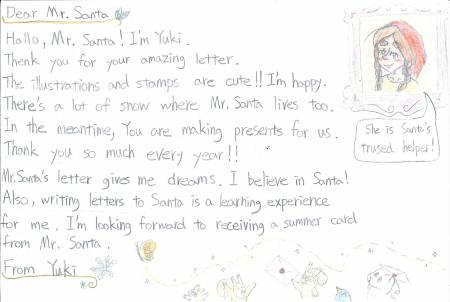 Dear Mr. Santa
Hallo, Mr. Santa! I'm Yuki.
Thank you for your amazing letter.
The illustrations and stamps are cute!! I'm happy.
There's a lot of snow where Mr. Santa lives too.
In the meantime, You are making presents for us.
Thank you so much every year!!
Mr. Santa's letter gives me dreams. I believe in Santa!
Also, writing letters to Santa is a learning experience
for me. I'm looking forward to receiving a summer card
from Mr. Santa.
From Yuki
She is Santa's
trused helper!